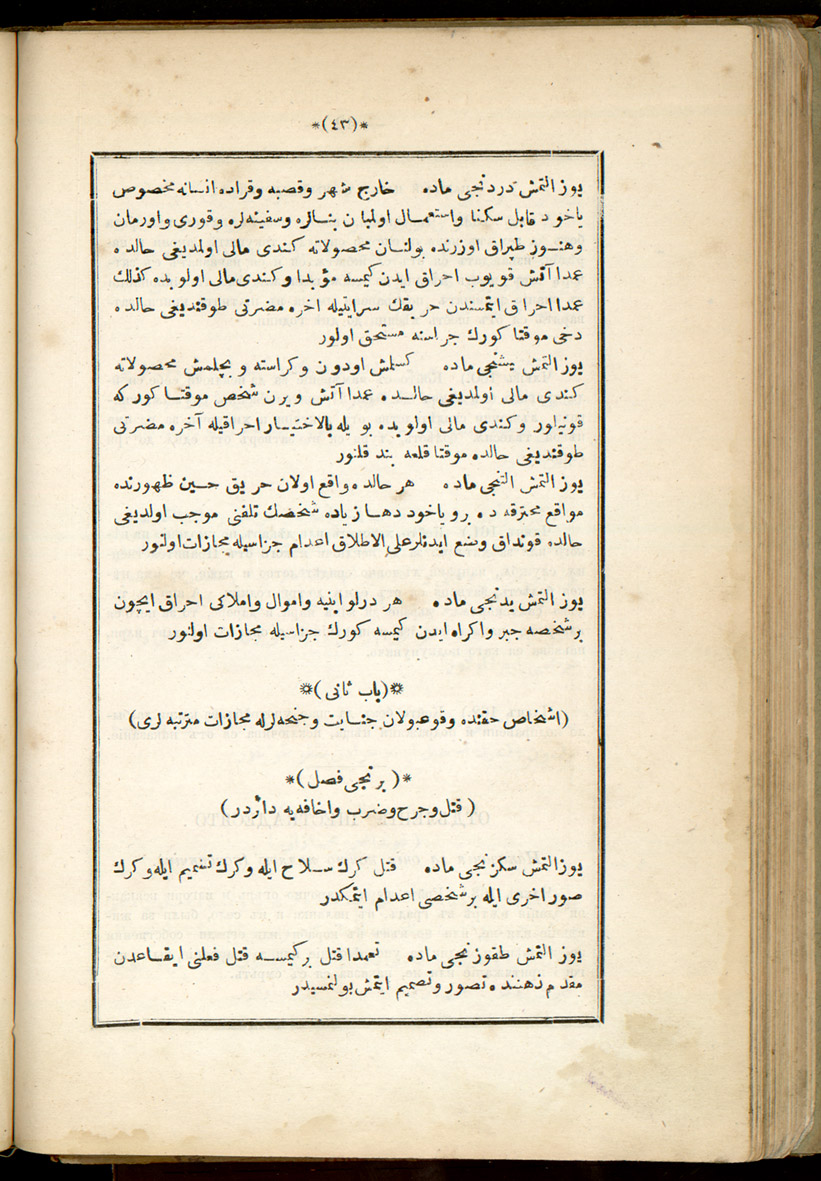 *(٤٣)*
یوز التمش دردنجی ماده خارج شهر وقصبه وقراده انسانه مخصوص
یاخود قابل سکنا واستعمال اولمیان بنالره وسفینه‌لره وقوری واورمان
وهنوز طپراق اوزرنده بولنان محصولاته کندی مالی اولمدیغی حالده
عمدا آتش قویوب احراق ایدن کیمسه مؤبدا وکندی مالی اولوبده کذلك
عمدا احراق ایتمسندن حریقك سرایتیله اخره مضرتی طوقندیغی حالده
دخی موقتا کورك جزاسنه مستحق اولور
یوز التمش بشنجی ماده کسلمش اودون وکراسته وبچلمش محصولاته
کندی مالی اولمدیغی حالده عمدا آتش ویرن شخص موقتا کورکه
قونیلور وکندی مالی اولوبده بویله بالاختیار احراقیله آخره مضرتی
طوقندیغی حالده موقتا قلعه بند قلنور
یوز التمش التنجی ماده هر حالده واقع اولان حریق حین ظهورنده
مواقع محترقه ده برو یاخود دها زیاده شخصك تلفنی موجب اولدیغی
حالده قونداق وضع ایدنلر علی الاطلاق اعدام جزاسیله مجازات اولنور
یوز التمش یدنجی ماده هر درلو ابنیه واموال واملاکی احراق ایچون
بر شخصه جبر واکراه ایدن کیمسه کورك جزاسیله مجازات اولنور
*(باب ثانی)*
(اشخاص حقنده وقوعبولان جنایت وجنحه‌لرله مجازات مترتبه لری)
*(برنجی فصل)*
(قتل وجرح وضرب واخافه‌یه دائردر)
یوز التمش سکزنجی ماده قتل کرك سلاح ایله وکرك تسمیم ایله وکرك
صور اخری ایله بر شخصی اعدام ایتمکدر
یوز التمش طقوزنجی ماده تعمدا قتل بر کیمسه قتل فعلنی ایقاعدن
مقدم ذهننده تصور وتصمیم ایتمش بولنمسیدر